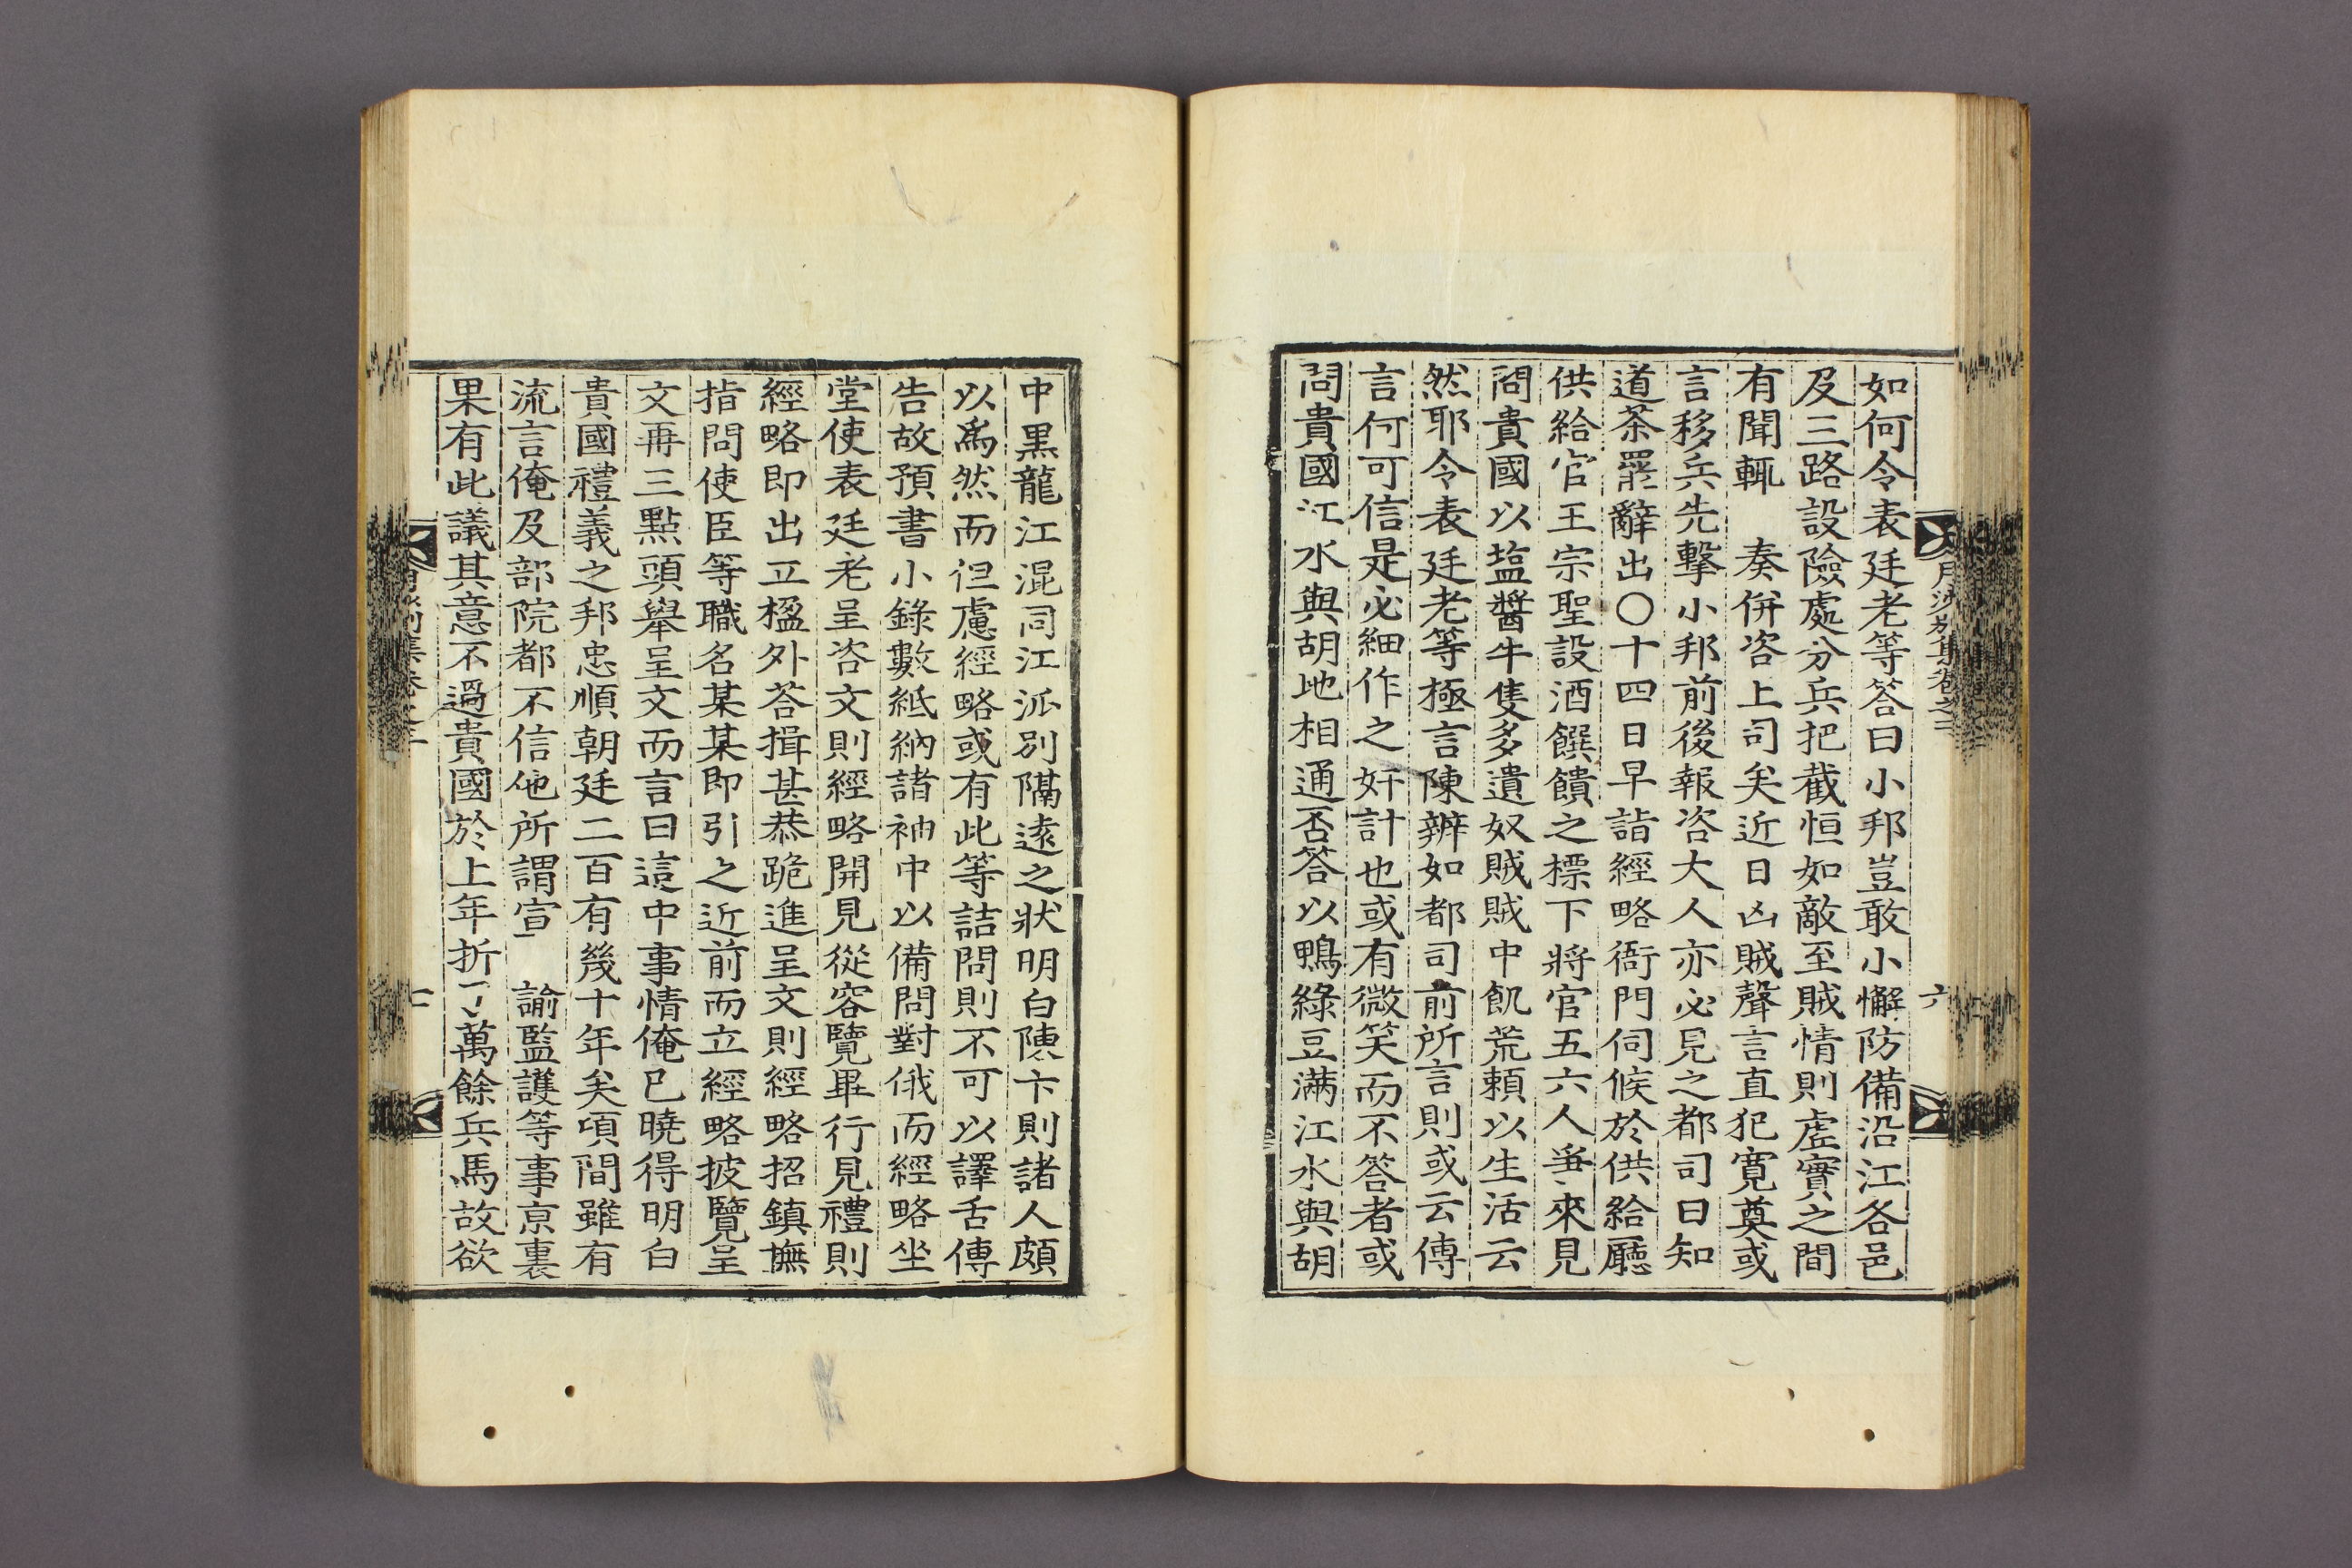 如何令表廷老等答曰小邦豈敢小懈防備沿江各邑
及三路設險處分兵把截恒如敵至賊情則虛實之間
有聞輒　奏併咨上司矣近日凶賊聲言直犯寬奠或
言移兵先擊小邦前後報咨大人亦必見之都司曰知
道茶罷辭出〇十四日早詣經略衙門伺候於供給廳
供給官王宗聖設酒饌饋之標下將官五六人爭來見
問貴國以塩醬牛隻多遺奴賊賊中飢荒賴以生活云
然耶令表廷老等極言陳辨如都司前所言則或云傳
言何可信是必細作之奸計也或有微笑而不答者或
問貴國江水與胡地相通否答以鴨綠豆滿江水與胡
月沙別集卷之二
六
中黑龍江混同江派別隔遠之狀明白陳卞則諸人頗
以爲然而但慮經略或有此等詰問則不可以譯舌傳
告故預書小錄數紙納諸袖中以備問對俄而經略坐
堂使表廷老呈咨文則經略開見從容覽畢行見禮則
經略即出立楹外荅揖甚恭跪進呈文則經略招鎮撫
指問使臣等職名某某即引之近前而立經略披覽呈
文再三點頭舉呈文而言曰這中事情俺已曉得明白
貴國禮義之邦忠順朝廷二百有幾十年矣頃間雖有
流言俺及部院都不信他所謂宣　諭監護等事京裏
果有此議其意不過貴國於上年折萬餘兵馬故欲
七